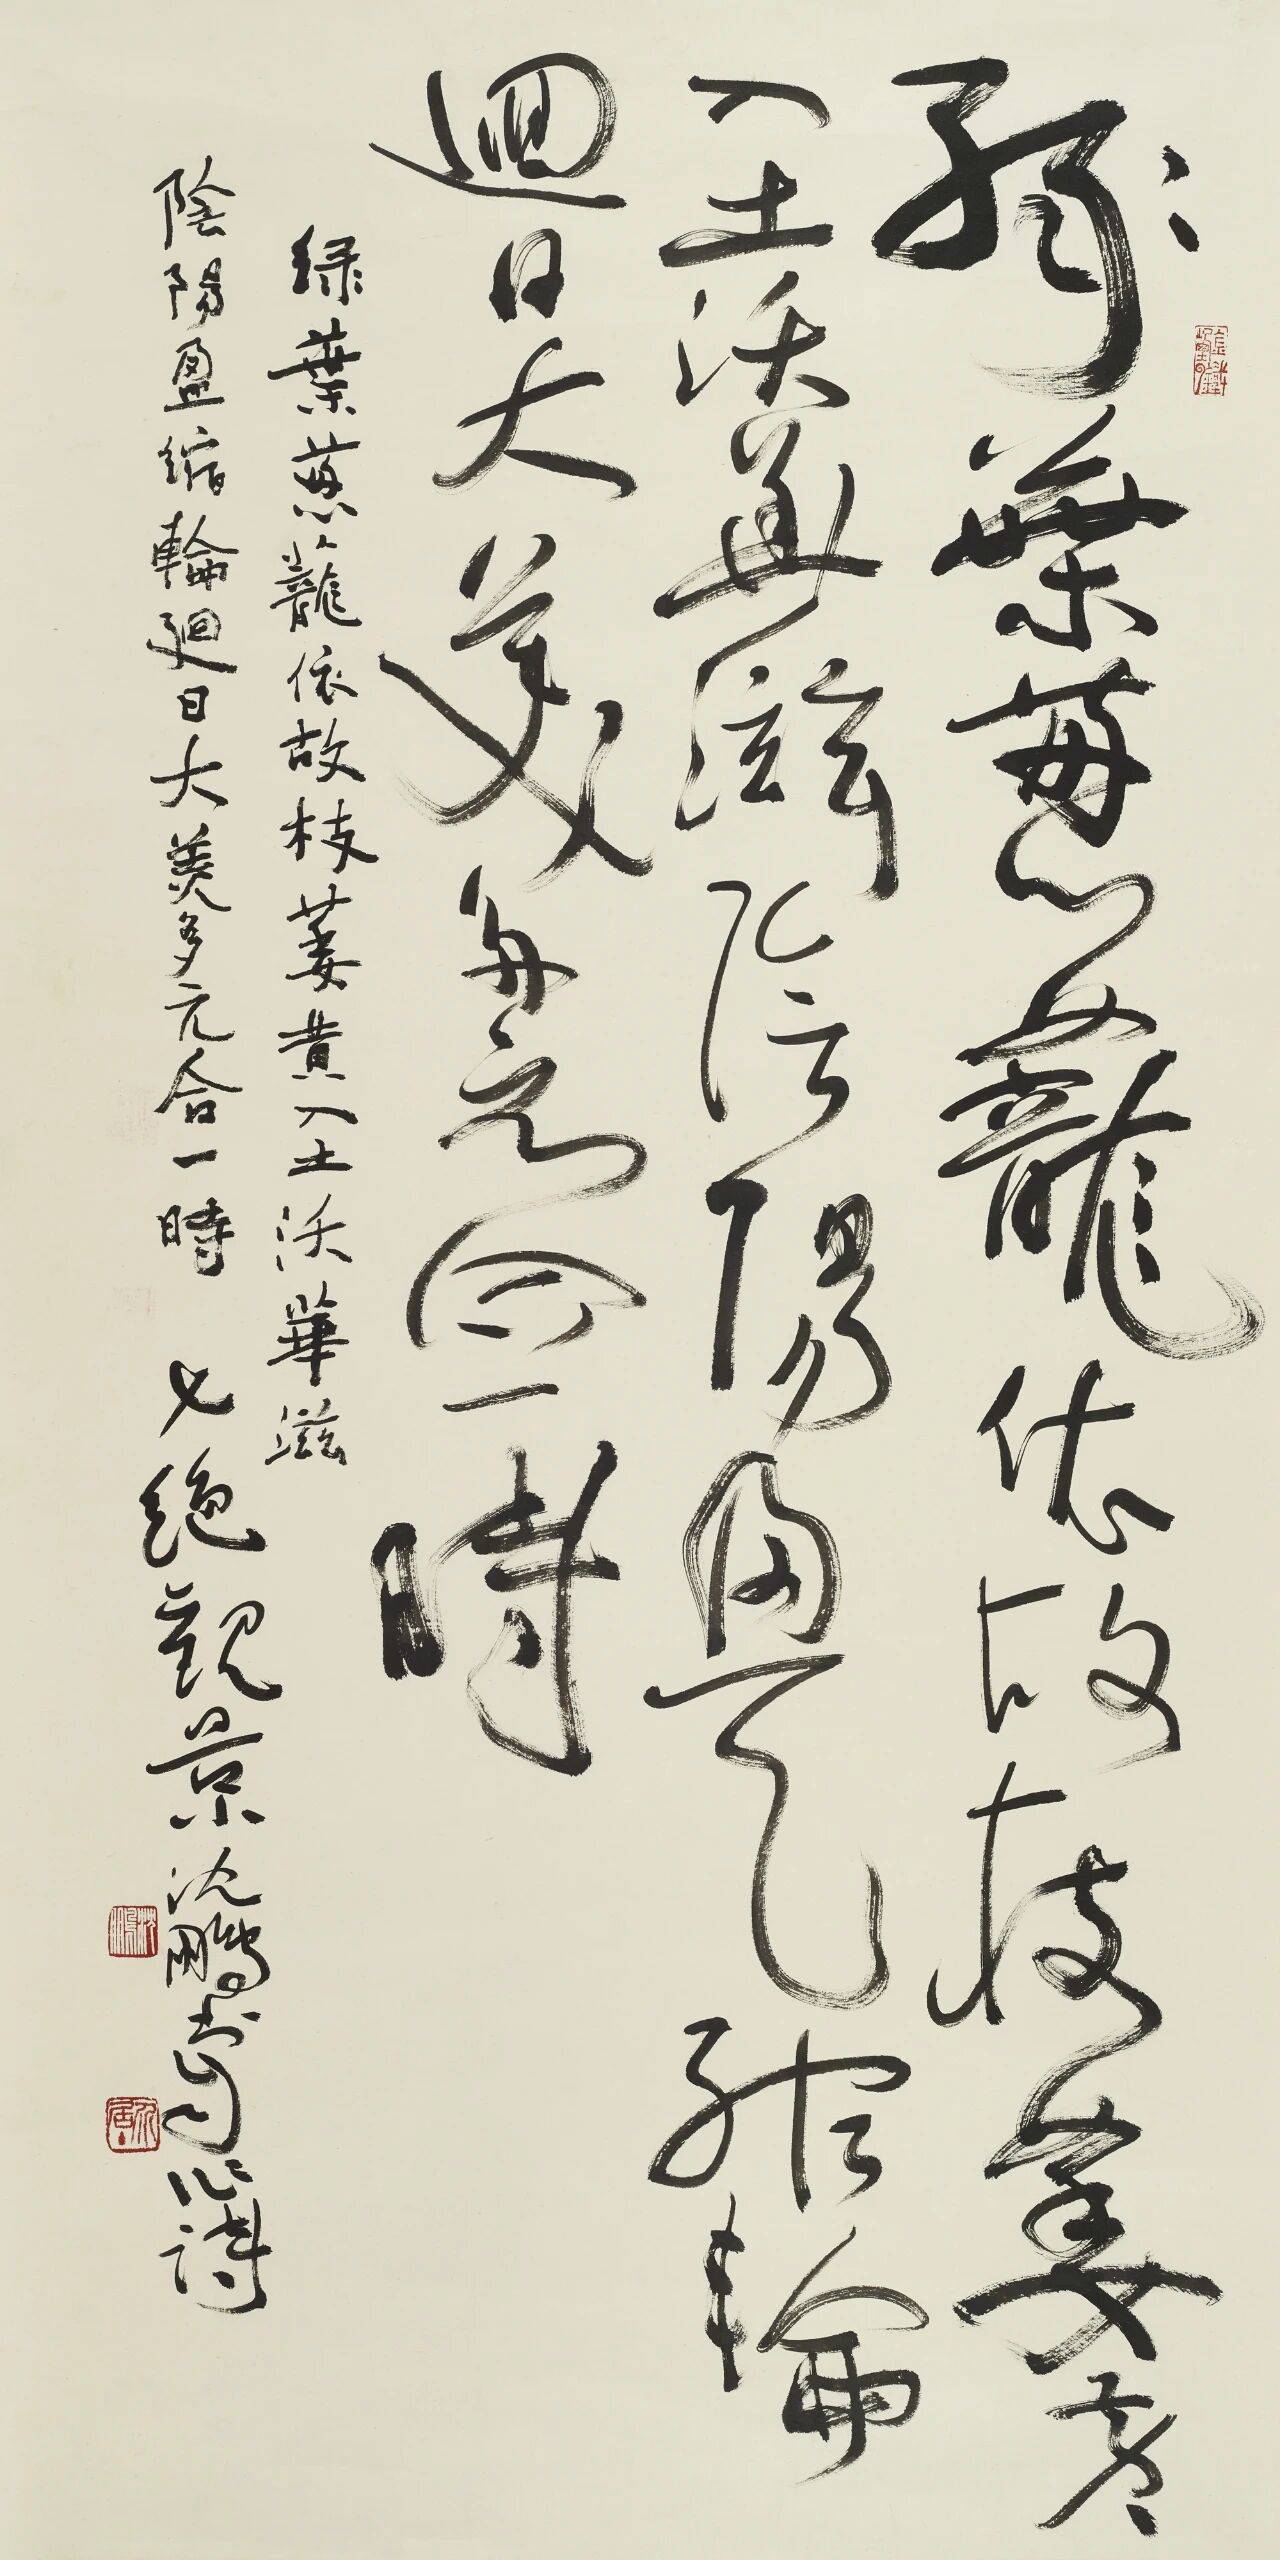 綠葉葱蘢依故枝萎黄
入土沃華滋陰陽盈縮輪
迴日大美多元合一時
绿葉葱蘢依故枝萎黄入土沃華滋
陰陽盈縮輪廻日大美多元合一時 七絶觀景沈鵬書自作詩
沈鵬